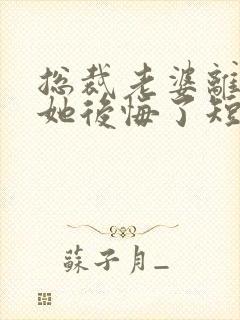 总裁老婆離
她後悔了短
蘇子月_